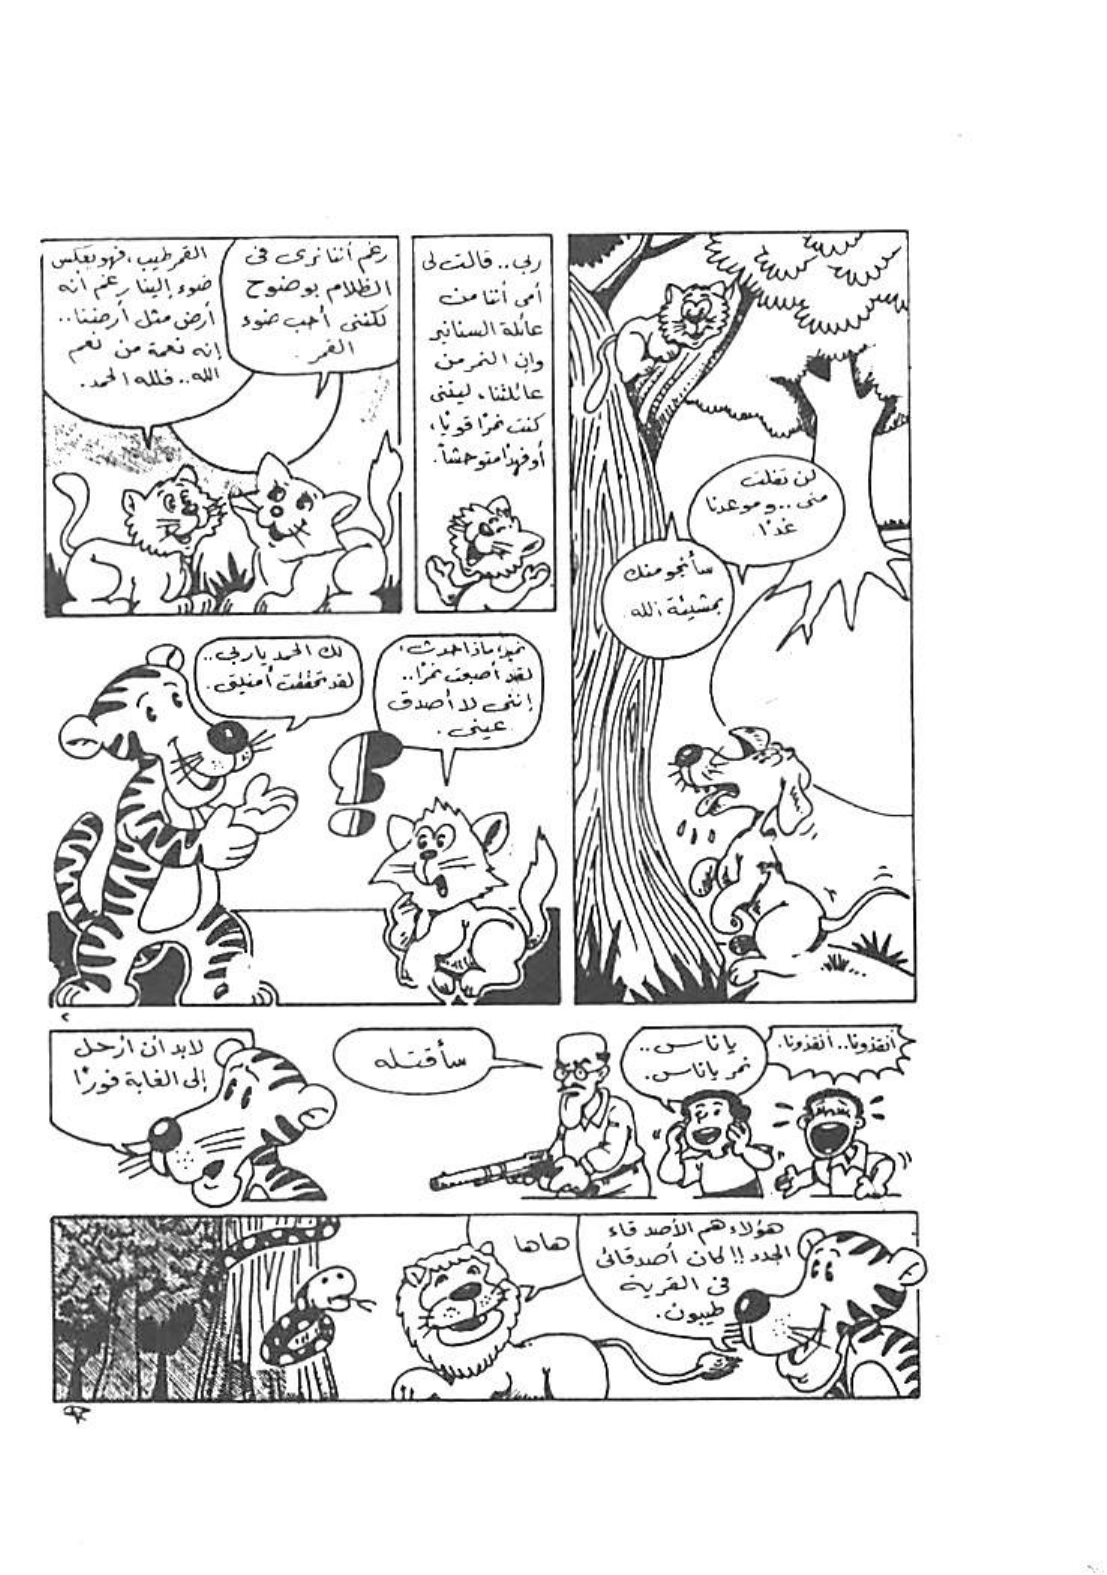 لن تفلت
منى.. وموعدنا
غدًا.
سأنجو منك
بمشيئة الله.
ربى.. قالت لى
أمى أننا من
عائلة السنانير
وإن النمر من
عائلتنا، ليتنى
كنت نمرًا قويًا،
أو فهدًا متوحشاً.
رغم أننا نرى فى
الظلام بوضوح
لكننى أحب ضوء
القمر.
القمر طيب، فهو يعكس
ضوء إلينا رغم انه
أرض مثل أرضنا..
إنه نعمة من نعم
الله.. فلله الحمد.
ماذا حدث،
لقد أصبحت نمرًا..
إننى لا أصدق
عينى.
لك الحمد ياربى..
لقد تحققت أمنيتى.
٢
أنقذونا.. أنقذونا.
ياناس..
نمر ياناس.
سأقتله
لابد ان أرحل
إلى الغابة فورًا
هؤلاء هم الأصدقاء
الجدد!! كان أصدقائى
فى القرية
طيبون.
هاها